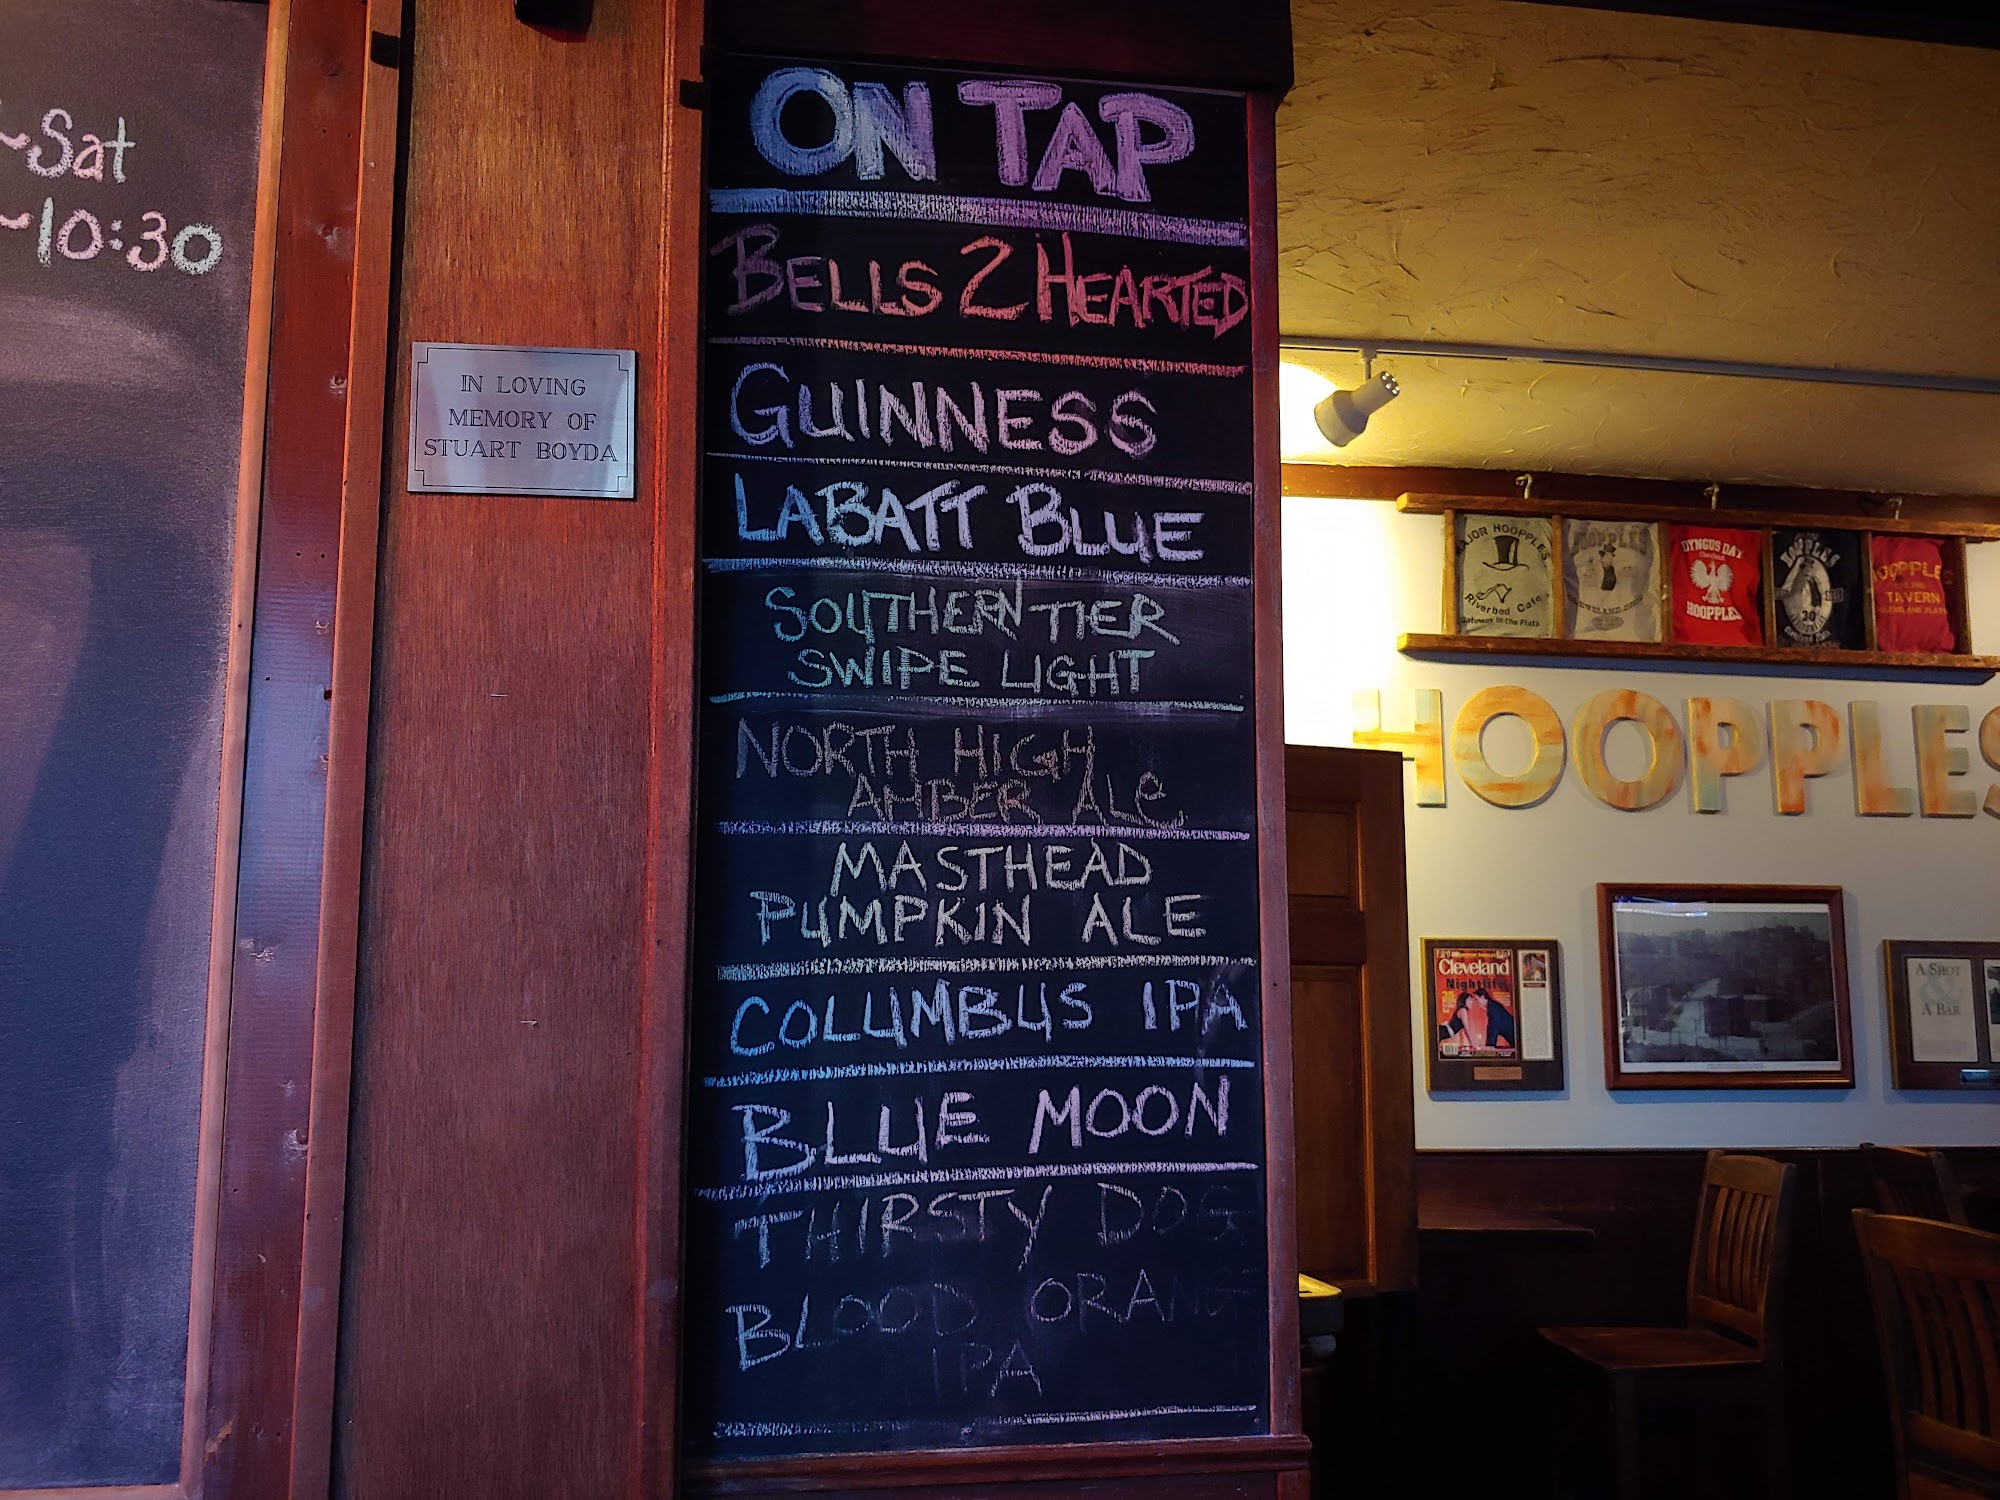 ~Sat
~10:30
IN LOVING
MEMORY OF
STUART BOYDA
ON TAP
BELLS 2 HEARTED
GUINNESS
LABATT BLUE
SOUTHERN TIER
SWIPE LIGHT
NORTH HIGH
AMBER ALe
MASTHEAD
PUMPKIN ALE
COLUMBUS IPA
BLUE MOON
THIRSTY DOG
BLOOD ORANG
IPA
MAJOR HOOPPLES
Riverbed Cafe
Gateway to the Flats
HOOPPLES
CLEVELAND, OHIO
DYNGUS DAY
Cleveland
HOOPPLES
HOOPPLES
30
HOOPPLES
TAVERN
CLEVELAND FLATS
HOOPPLES
Cleveland
Nightlife
A SHOT
&
A BAR